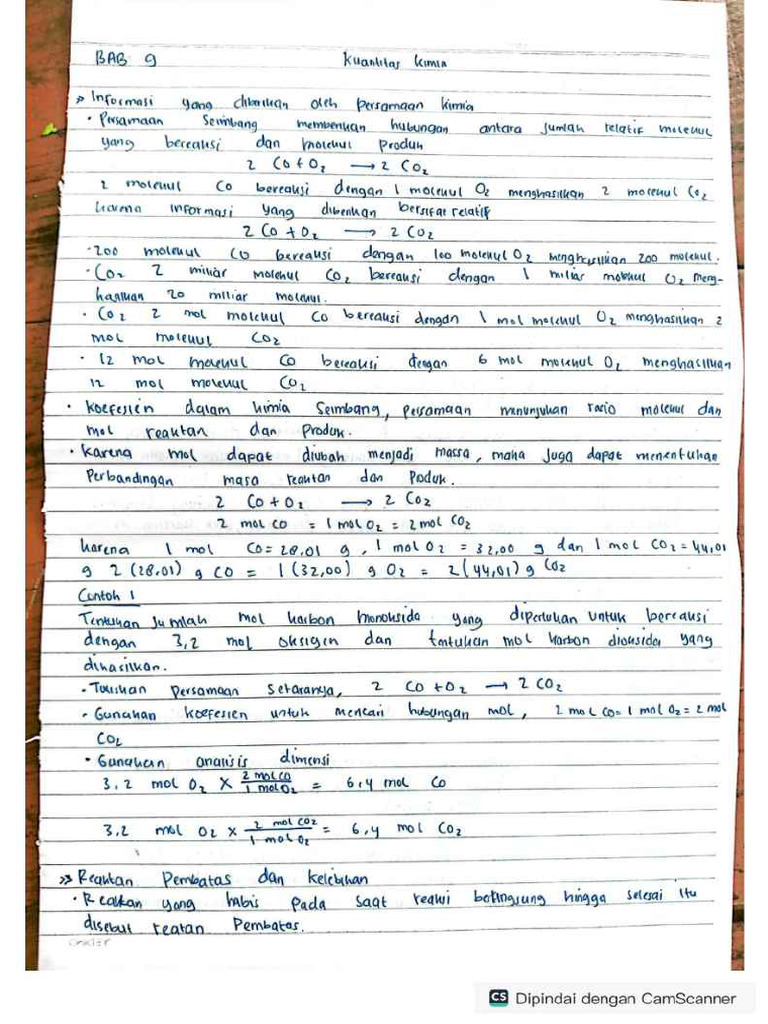 BAB 9 Kuantitas Kimia
» Informasi yang diberikan oleh persamaan kimia
• Persamaan Seimbang memberikan hubungan antara jumlah relatif molekul
yang bereaksi dan molekul produk
2 CO + O2 → 2 CO2
2 molekul CO bereaksi dengan 1 molekul O2 menghasilkan 2 molekul CO2
karena informasi yang diberikan bersifat relatif
2 CO + O2 → 2 CO2
• 200 molekul CO bereaksi dengan 100 molekul O2 menghasilkan 200 molekul.
• CO2 2 miliar molekul CO2 bereaksi dengan 1 miliar molekul O2 meng-
hasilkan 20 miliar molekul.
• CO2 2 mol molekul CO bereaksi dengan 1 mol molekul O2 menghasilkan 2
mol molekul CO2
• 12 mol molekul CO bereaksi dengan 6 mol molekul O2 menghasilkan
12 mol molekul CO2
• Koefesien dalam kimia Seimbang, persamaan menunjukan rasio molekul dan
mol reaktan dan Produk.
• Karena mol dapat diubah menjadi massa, maka juga dapat menentukan
Perbandingan masa reaktan dan Poduk.
2 CO + O2 → 2 CO2
2 mol CO = 1 mol O2 = 2 mol CO2
karena 1 mol CO = 28,01 g, 1 mol O2 = 32,00 g dan 1 mol CO2 = 44,01
g 2 (28,01) g CO = 1 (32,00) g O2 = 2 (44,01) g CO2
Contoh 1
Tentukan Jumlah mol karbon monoksida yang diperlukan untuk bereaksi
dengan 3,2 mol oksigen dan tentukan mol karbon dioksida yang
dihasilkan.
• Tuliskan persamaan Setaranya, 2 CO + O2 → 2 CO2
• Gunakan koefesien untuk mencari hubungan mol, 2 mol CO = 1 mol O2 = 2 mol
CO2
• Gunakan analisis dimensi
3,2 mol O2 × 2 mol CO / 1 mol O2 = 6,4 mol CO
3,2 mol O2 × 2 mol CO2 / 1 mol O2 = 6,4 mol CO2
» Reaktan Pembatas dan kelebihan
• Reaktan yang habis pada saat reaksi berlangsung hingga selesai itu
disebut reatan Pembatas.
CS Dipindai dengan CamScanner